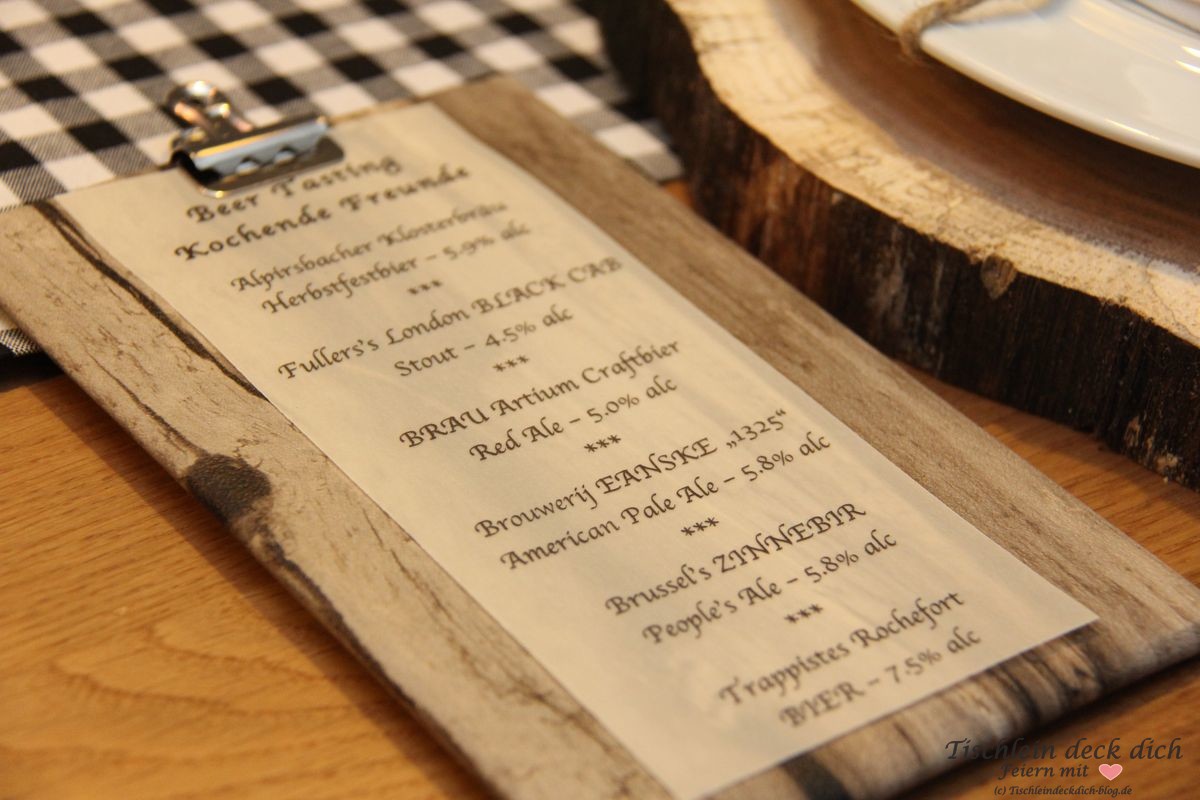 Beer Tasting
Kochende Freunde
Alpirsbacher Klosterbräu
Herbstfestbier – 5.9% alc
***
Fullers's London BLACK CAB
Stout – 4.5% alc
***
BRAU Artium Craftbier
Red Ale – 5.0% alc
***
Brouwerij EANSKE „1325“
American Pale Ale – 5.8% alc
***
Brussel's ZINNEBIR
People's Ale – 5.8% alc
***
Trappistes Rochefort
BIER – 7.5% alc
Tischlein deck dich
feiern mit
(c) Tischleindeckdich-blog.de